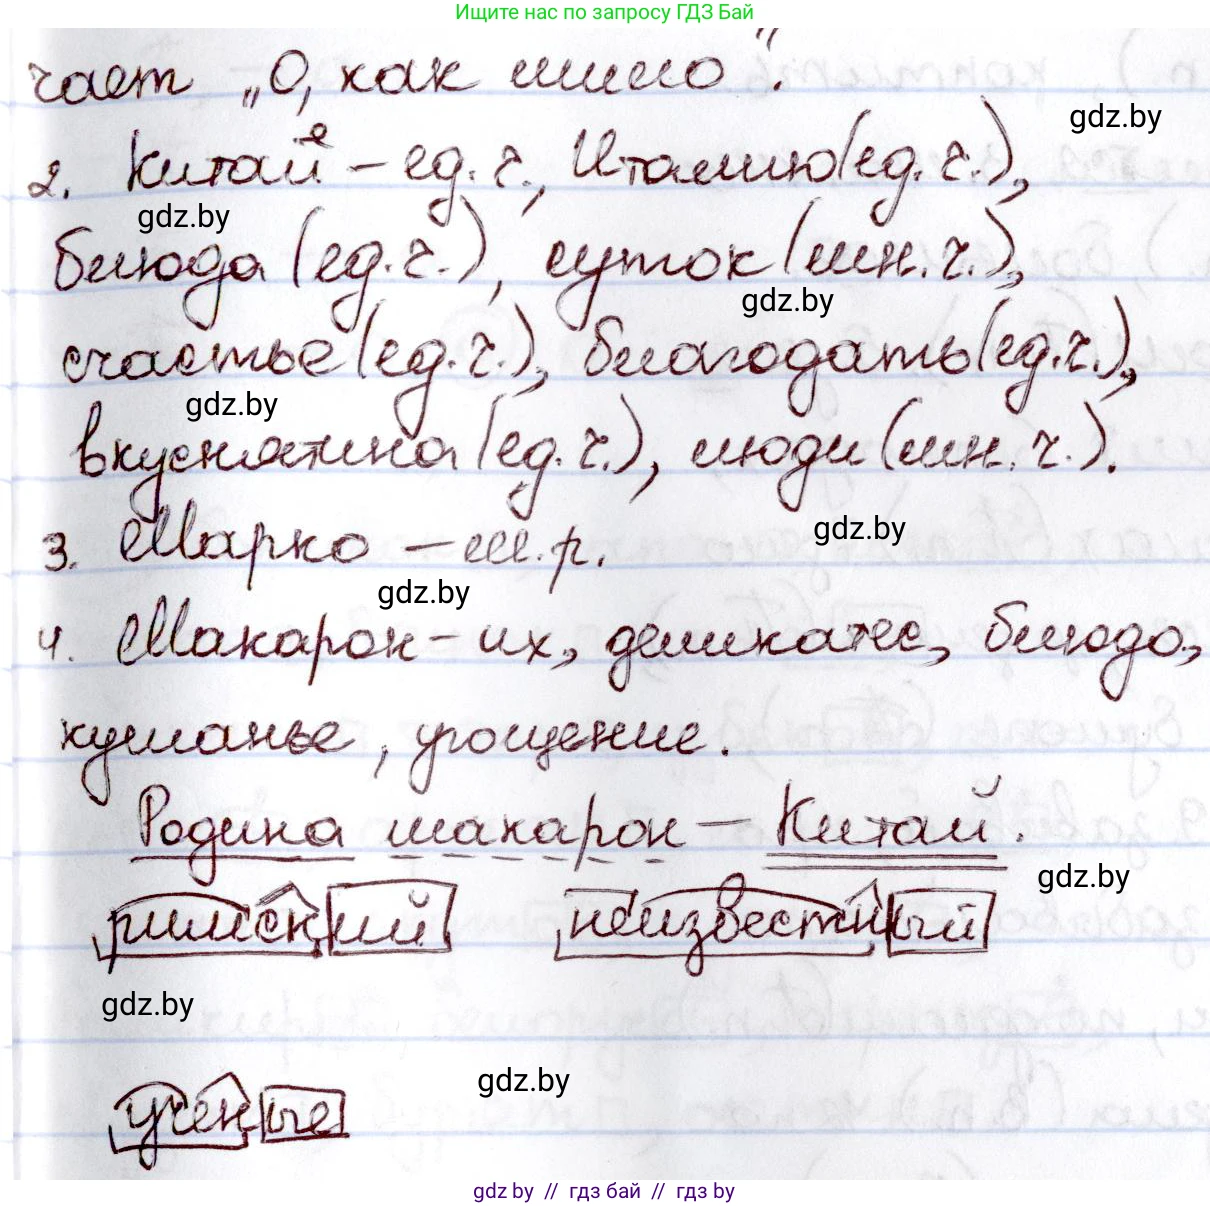 Ищите нас по запросу ГДЗ Бай
чает „О, как мило".
gdz.by
2. Китай е – ед. ч., Италию (ед. ч.),
gdz.by
блюда (ед. ч.), суток (мн. ч.),
gdz.by
счастье (ед. ч.), благодать (ед. ч.),
gdz.by
вкуснятина (ед. ч.), люди (мн. ч.).
3. Марко – м. р.
gdz.by
gdz.by
4. Макарон – их, деликатес, блюдо,
кушанье, угощение.
Родина макарон – Китай.
gdz.by
римский неизвестный
gdz.by
gdz.by
учёные
gdz by // гдз бай // гдз by